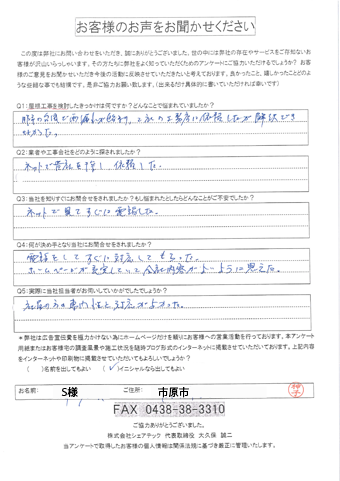 お客様のお声をお聞かせください
この度は弊社にお問い合わせをいただき、誠にありがとうございました。世の中には弊社の存在やサービスをご存知ないお
客様が沢山いらっしゃいます。その方たちに弊社をよく知っていただくためのアンケートにご協力いただけるでしょうか？お客
様のご意見をお聞かせいただき今後の活動に反映させていただきたいと考えております。良かったこと、嬉しかったことどのよう
な些細な事でも結構です。是非ご協力お願い致します。（出来るだけ具体的に書いていただければ幸いです）
Q1：屋根工事を検討したきっかけは何ですか？どんなことで悩まれていましたか？
Q2：業者や工事会社をどのように探されましたか？
ネットで会社を探し依頼した。
Q3：当社を知りすぐにお問合せをされましたか？もし悩まれたとしたらどんなことがご不安でしたか？
ネットで見てすぐに電話した。
Q4：何が決め手となり当社にお問合せをされましたか？
電話をしてすぐに対応してもらった。
ホームページが充実していて会社内容がよいように思えた。
Q5：実際に当社担当者がお伺いしていかがでしたでしょうか？
社員の方の専門性と対応がよかった。
＊弊社は広告宣伝費を極力かけない為にホームページだけを頼りにお客様への営業活動を行っております。本アンケート
用紙またはお客様宅の調査風景や施工状況を随時ブログ形式のインターネットに掲載させていただいております。上記内容
をインターネットや印刷物に掲載させていただいてもよろしいでしょうか？
（　）名前を出してもよい　（✓）イニシャルなら出してもよい
お名前： S様　ご住所： 市原市
FAX 0438-38-3310
ご協力ありがとうございました。
株式会社シェアテック 代表取締役 大久保 誠二
当アンケートで取得したお客様の個人情報は関係法規に基づき厳正に管理いたします。